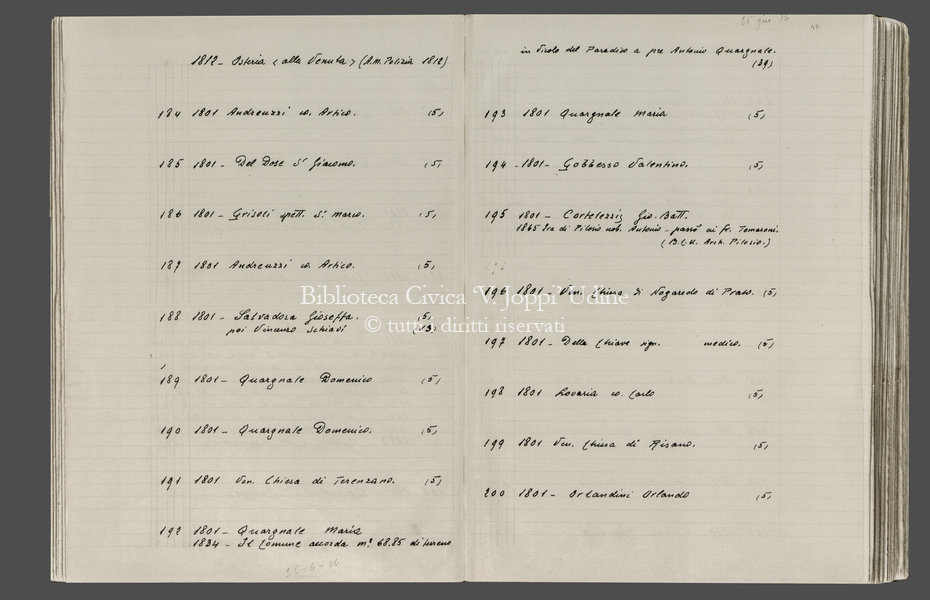 1812 - Osteria < alla Venuta > (A.m. Polizia 1812)
184 1801 Andreuzzi co. Artico. (5)
185 1801 - Del Dose S. Giacomo. (5)
186 1801 - Grisoli spett. S. Marco. (5)
187 1801 Andreuzzi co. Artico. (5)
188 1801 - Salvadora Gioseffa. (5)
poi Vincenzo Schiavi (13)
189 1801 - Quargnale Domenico (5)
190 1801 - Quargnale Domenico. (5)
191 1801 Ven. Chiesa di Terenzano. (5)
192 1801 - Quargnale Maria
1834 - Il Comune accorda m.² 68.85 di terreno
25-6-36
25 giu 36
40
in Vicolo del Paradiso a pre Antonio Quargnale.
(39)
193 1801 Quargnale Maria (5)
194 - 1801 - Gobbesso Valentino. (5)
195 1801 - Cortelezzis Gio. Batt.
1865 Era di Pilosio nob. Antonio - passò ai fr. Tomasoni.
(B.C.U. Arch. Pilosio.)
196 1801 - Ven. Chiesa di Nogaredo di Prato. (5)
197 1801 - Della Chiave sign. medico. (5)
198 1801 Lovaria co. Carlo (5)
199 1801 Ven. Chiesa di Risano. (5)
200 1801 - Orlandini Orlando (5)
Biblioteca Civica "V. Joppi" Udine
© tutti i diritti riservati